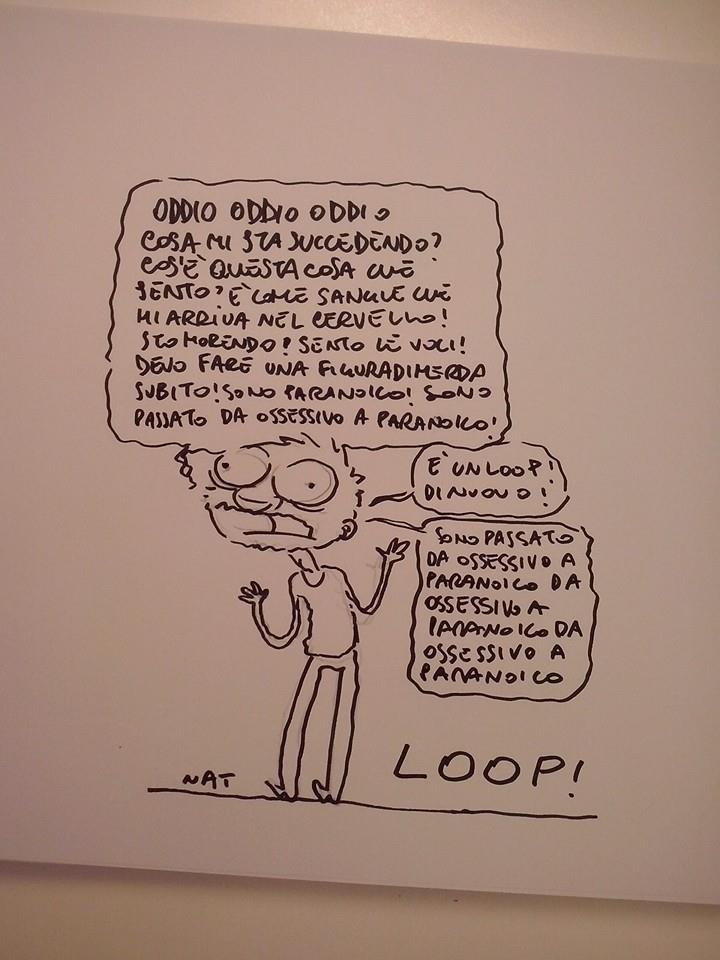 ODDIO ODDIO ODDIO
COSA MI STA SUCCEDENDO?
COS'È QUESTA COSA CHE
SENTO? È COME SANGUE CHE
MI ARRIVA NEL CERVELLO!
STO MORENDO? SENTO LE VOCI!
DEVO FARE UNA FIGURADIMERDA
SUBITO! SONO PARANOICO! SONO
PASSATO DA OSSESSIVO A PARANOICO!
È UN LOOP!
DI NUOVO!
SONO PASSATO
DA OSSESSIVO A
PARANOICO DA
OSSESSIVO A
PARANOICO DA
OSSESSIVO A
PARANOICO
LOOP!
NAT